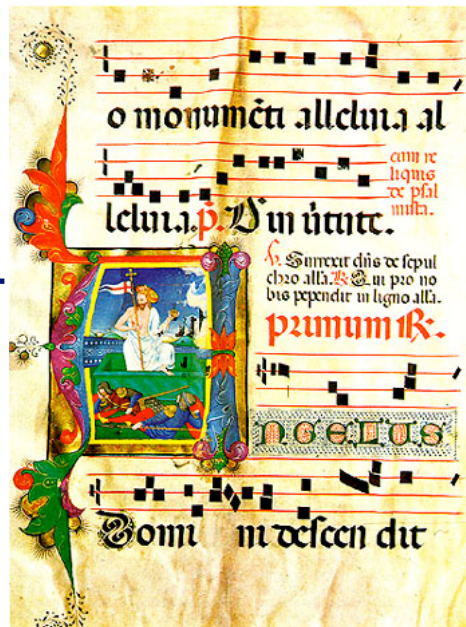 o monumēti alleluia al
cum re
liquis
de psal
mista.
leluia. p̄. D in ūtute.
℣. Surrexit dn̄s de sepul
chro alla. ℟. Qui pro no
bis pependit in ligno alla.
primum ℟.
ANGELUS
Domi ni descen dit